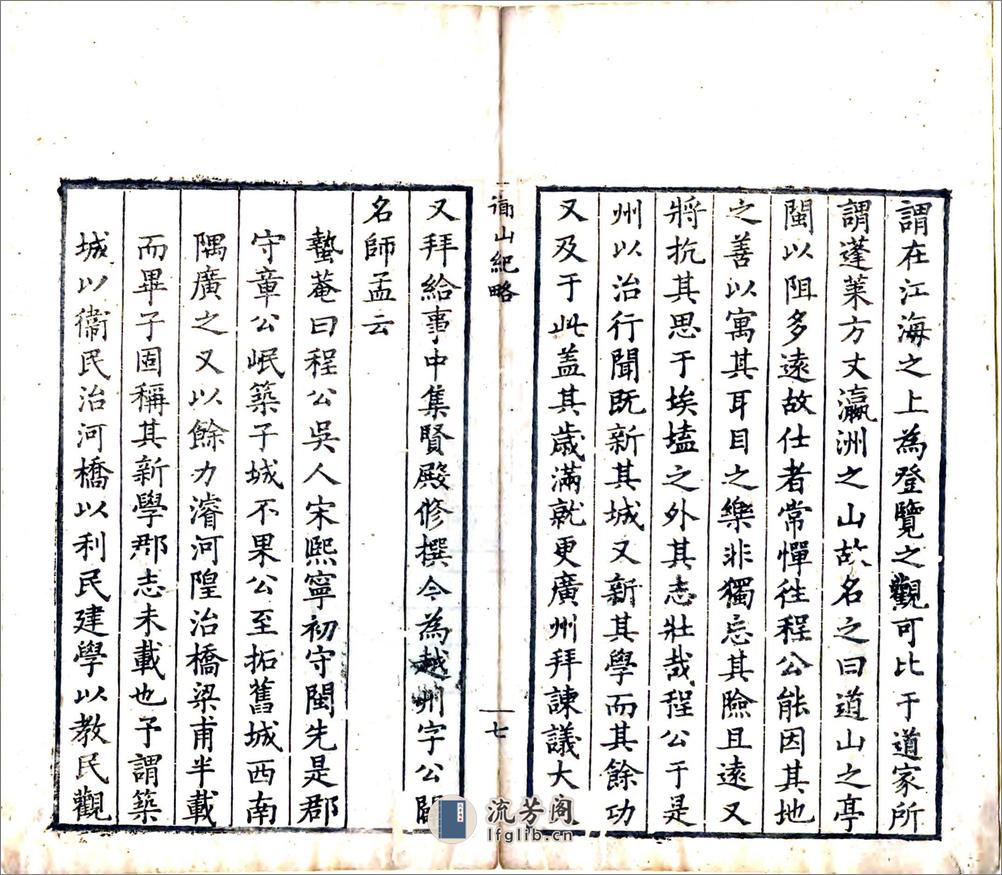 謂在江海之上為登覽之觀可比于道家所
謂蓬萊方丈瀛洲之山故名之曰道山之亭
閩以阻多遠故仕者常憚往程公能因其地
之善以寓其耳目之樂非獨忘其險且遠又
將抗其思于埃壒之外其志壯哉程公于是
州以治行聞既新其城又新其學而其餘功
又及于此蓋其歲滿就更廣州拜諫議大
山紀略
七
又拜給事中集賢殿修撰今為越州字公闢
名師孟云
蟄菴曰程公吳人宋熙寧初守閩先是郡
守章公岷築子城不果公至拓舊城西南
隅廣之又以餘力濬河隍治橋梁甫半載
而畢子固稱其新學郡志未載也予謂築
城以衞民治河橋以利民建學以教民觀
流芳阁
lfglib.cn